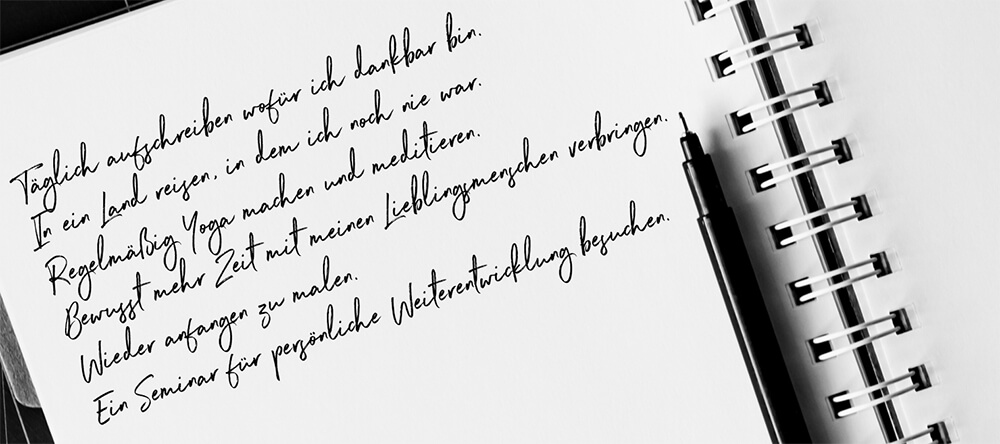 Täglich aufschreiben wofür ich dankbar bin.
In ein Land reisen, in dem ich noch nie war.
Regelmäßig Yoga machen und meditieren.
Bewusst mehr Zeit mit meinen Lieblingsmenschen verbringen.
Wieder anfangen zu malen.
Ein Seminar für persönliche Weiterentwicklung besuchen.